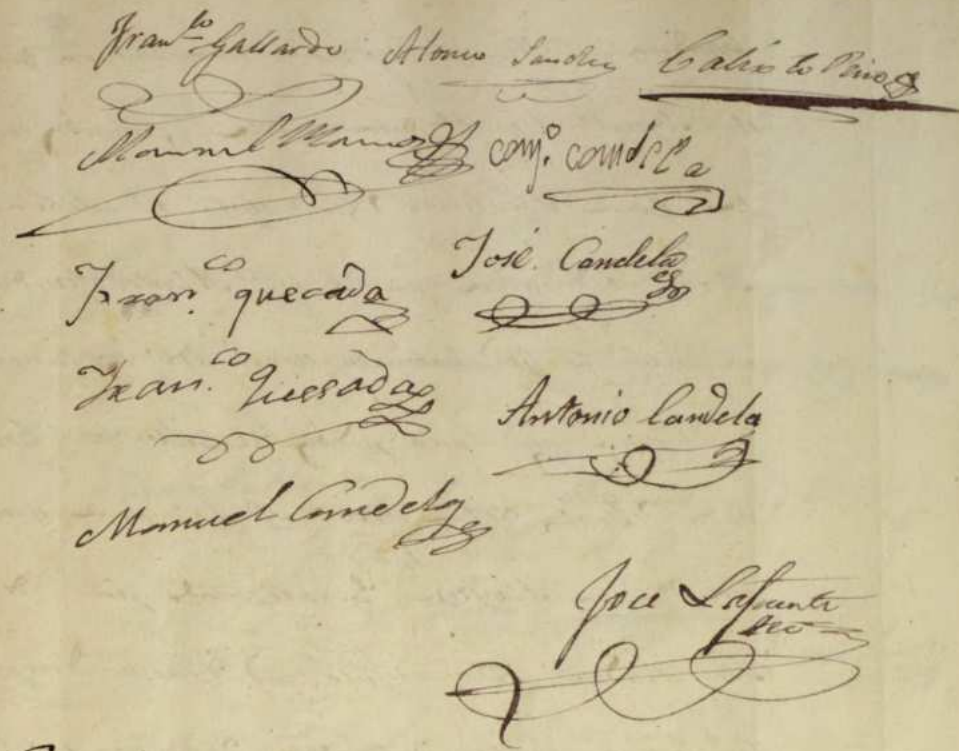 Fran.co Gallardo Alonso Sanchez Calixto Pino
Manuel
Candela
Fran.co quecada José Candela
Fran.co Quesada Antonio Candela
Manuel Candela
Joce Lafuente